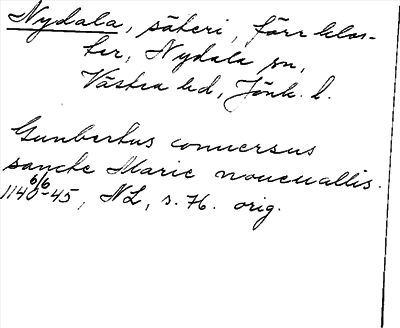 Nydala, säteri, förr klos-
ter, Nydala sn,
Västra hd, Jönk. l.
Gunbertus conuersus
sancte Marie noueuallis.
1140 6/6-45, NL, s. 76. orig.